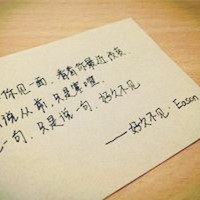 你见一面，看看你最近改变，
说从前，只是寒暄，
一句，只是说一句，好久不见
——好久不见 Eason